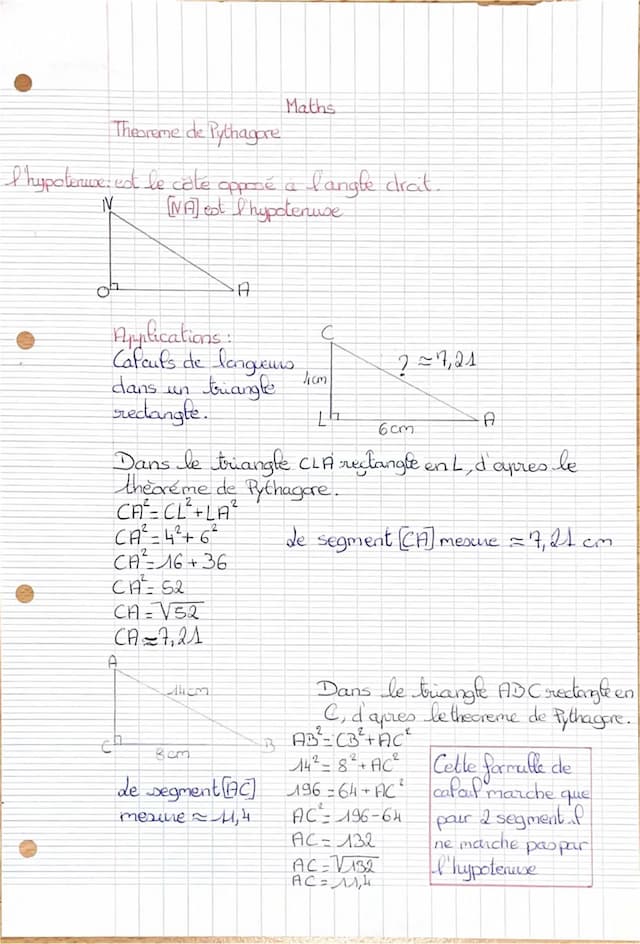 Maths
Theoreme de Pythagore
l'hypotenuse: est le côté opposé à l'angle droit.
[NA] est l'hypotenuse
N
O
A
Applications :
Calculs de longueurs
dans un triangle
rectangle.
C
4cm
? ≈ 7,21
L
6cm
A
Dans le triangle CLA rectangle en L, d'apres le
théoréme de Pythagore.
CA²= CL²+LA²
CA²= 4²+6²
CA²= 16 + 36
CA²= 52
CA = √52
CA ≈ 7,21
de segment [CA] mesure ≈ 7,21 cm
A
14cm
C
8cm
B
de segment [AC]
mesure ≈ 11,4
Dans le triangle ABC rectangle en
C, d'apres le theoreme de Pythagore.
AB²= CB²+AC²
14²= 8²+AC²
196 = 64 + AC²
AC²= 196-64
AC = 132
AC = √132
AC = 11,4
Cette formulle de
calcul marche que
pour 2 segment il
ne marche pas par
l'hypotenuse